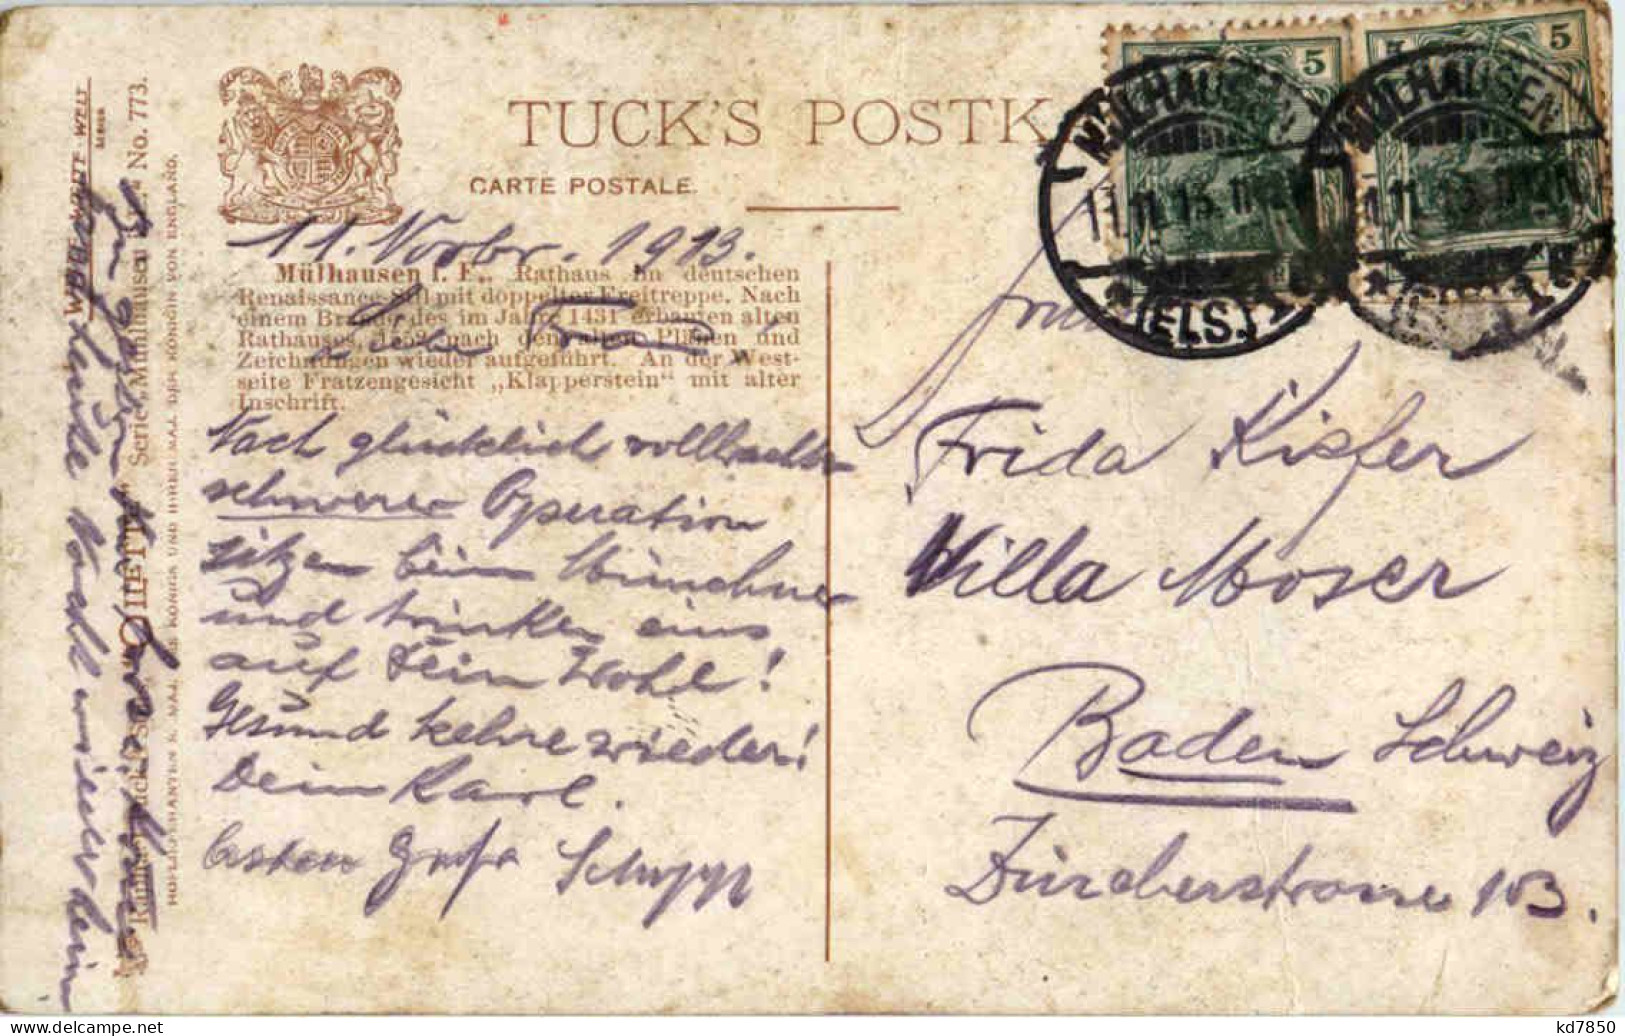 TUCK'S POSTK
CARTE POSTALE.
11. Novbr. 1913.
Mülhausen i. E., Rathaus im deutschen
Renaissance-Stil mit doppelter Freitreppe. Nach
einem Brande des im Jahre 1431 erbauten alten
Rathauses, 1552 nach den alten Plänen und
Zeichnungen wieder aufgeführt. An der West-
seite Fratzengesicht „Klapperstein“ mit alter
Inschrift.
Liebe Frau
Nach glücklich vollbrachter
schwerer Operation
sitzen beim Münchner
und trinken eins
auf Dein Wohl!
Gesund kehre wieder!
Dein Karl.
besten Gruß Schupp
Serie „Mülhausen i. E.“ No. 773.
"OILETTE"
HOFLIEFERANTEN S. MAJ. DES KÖNIGS UND IHRER MAJ. DER KÖNIGIN VON ENGLAND.
5
5
MÜLHAUSEN
11.11.13
(ELS.)
MÜLHAUSEN
11.11.13
Frau
Frida Kiefer
Villa Moser
Baden Schweiz
Zürcherstrasse 103.
kd7850